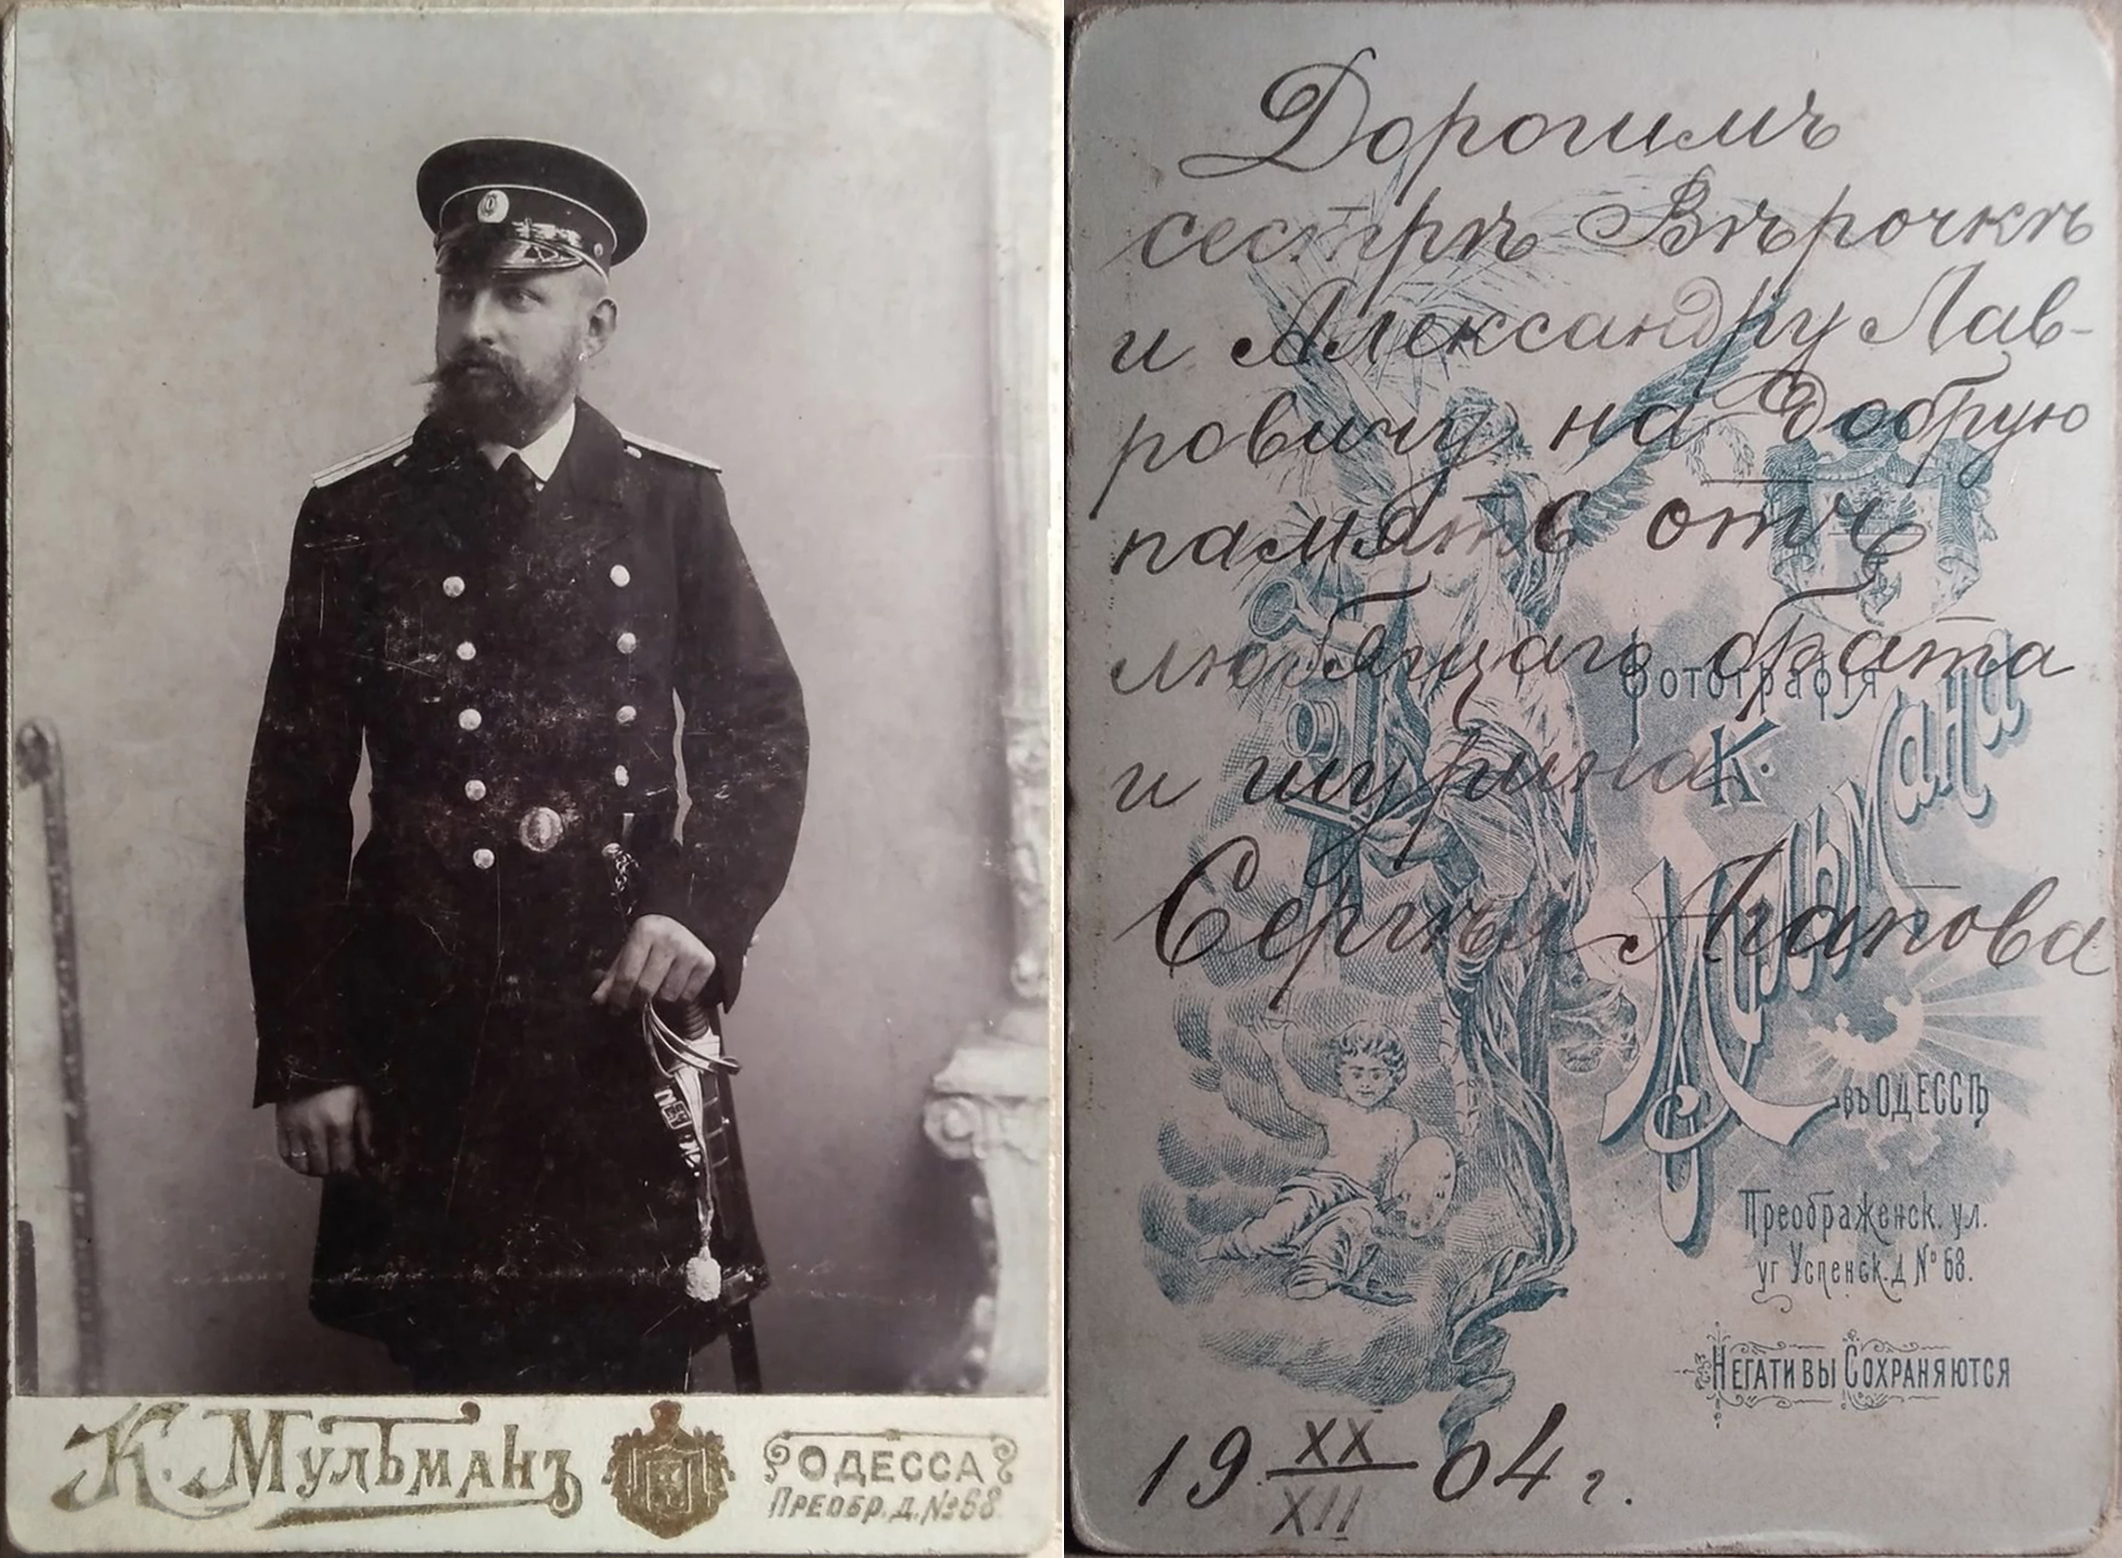 К. Мульманъ
ОДЕССА
ПРЕОБР. Д. №68
Дорогимъ
сестрѣ Вѣрочкѣ
и Александру Лав-
ровичу на добрую
память отъ
любящаго брата
и шурина
Сергѣя Агапова
Фотографія
К.
Мульмана
въ ОДЕССѢ
Преображенск. ул.
уг Успенск. д № 68.
НЕГАТИВЫ СОХРАНЯЮТСЯ
19 XX/XII 04 г.